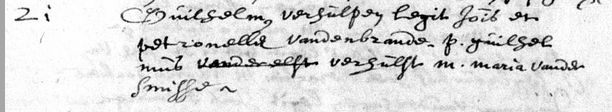 21 Guilhelmus verhulpen legit Jois et
petronella vandenbrande p. guilhel
mus vanderelst verhulst m. maria vander
smisse